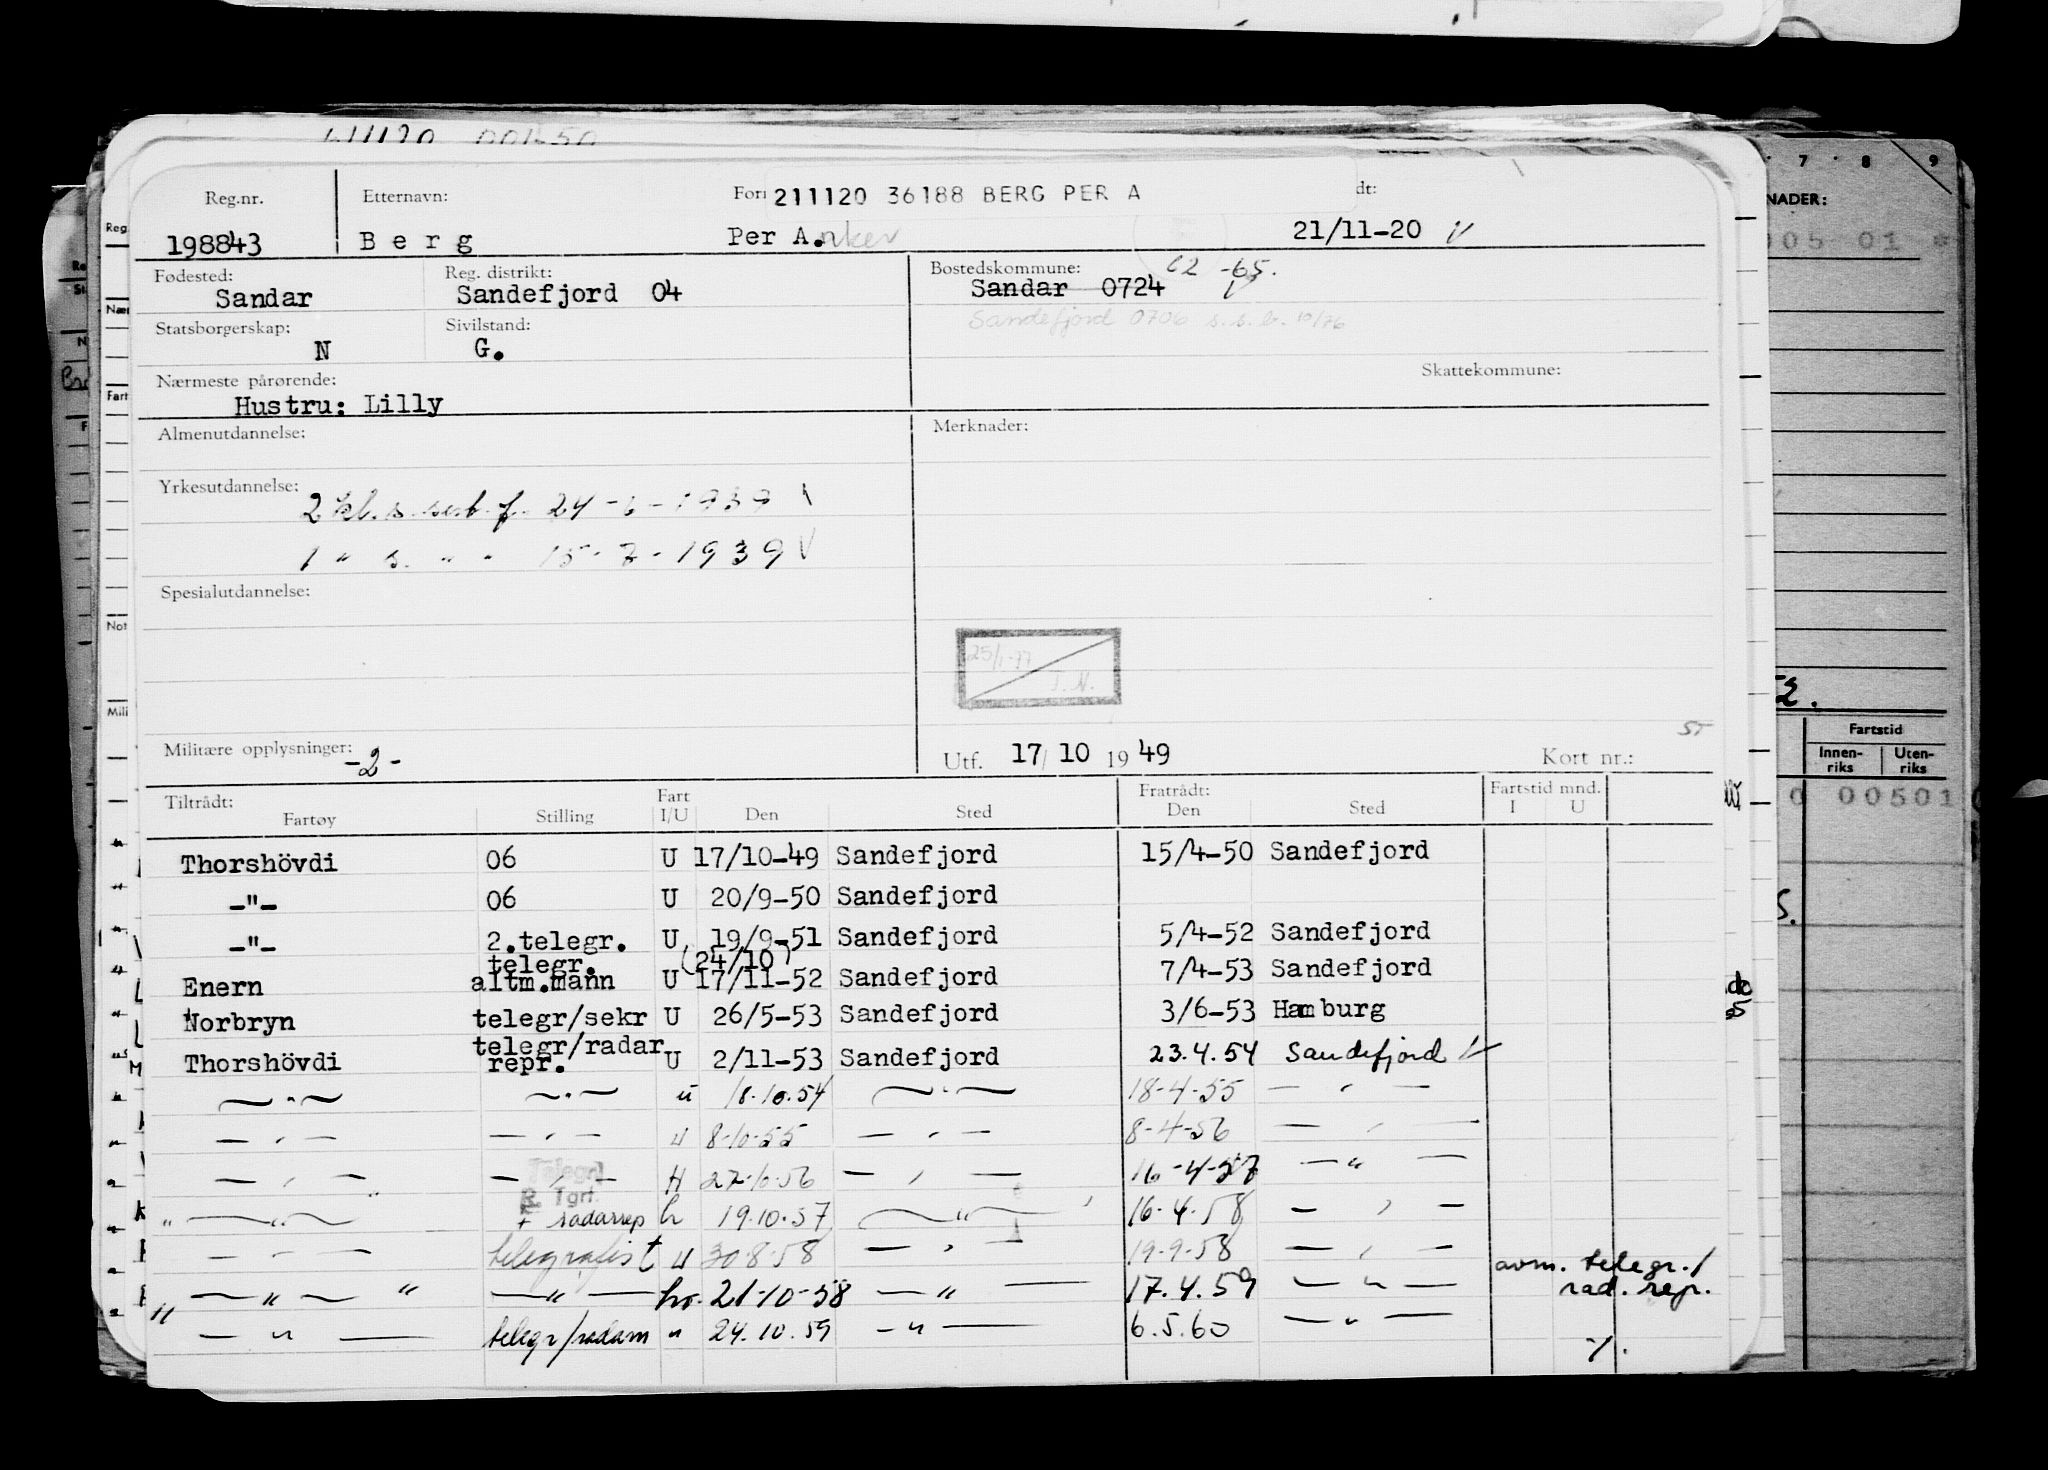 Reg.nr. Etternavn: Forn 211120 36188 BERG PER A dt:
198843 Berg Per A.nker 21/11-20 V
Fødested: Reg. distrikt: Bostedskommune: 62 -65.
Sandar Sandefjord 04 Sandar 0724
Statsborgerskap: Sivilstand: Sandefjord 0706 s.s.b. 10/76
N G.
Nærmeste pårørende: Skattekommune:
Hustru: Lilly
Almenutdannelse: Merknader:
Yrkesutdannelse:
2 kl. s. sert. f. 24-6-1939
1 " s. " " 15-7-1939 V
Spesialutdannelse:
25/1-77
T.N.
Militære opplysninger: -2- Utf. 17/10 1949 Kort nr.:
Tiltrådt: Fart Fratrådt: Fartstid mnd.
Fartøy Stilling I/U Den Sted Den Sted I U
Thorshövdi 06 U 17/10-49 Sandefjord 15/4-50 Sandefjord
-"- 06 U 20/9-50 Sandefjord
-"- 2.telegr. U 19/9-51 Sandefjord 5/4-52 Sandefjord
telegr. (24/10)
Enern altm.mann U 17/11-52 Sandefjord 7/4-53 Sandefjord
Norbryn telegr/sekr U 26/5-53 Sandefjord 3/6-53 Hamburg
telegr/radar
Thorshövdi repr. U 2/11-53 Sandefjord 23.4.54 Sandefjord
-"- -"- u 18.10.54 -"- 18-4-55 -"-
-"- -"- u 8-10-55 -"- 8-4-56 -"-
-"- -"- 27-10-56 -"- 16-4-57 -"-
Telegr.
R. Tgrf.
-"- + radarrep 19.10.57 -"- 16.4.58 -"-
-"- telegrafist u 30-8-58 -"- 19-9-58 -"-
avm. telegr./
-"- -"- 21-10-58 -"- 17.4.59 -"- rad. repr.
-"- telegr/radarm " 24.10.59 -"- 6.5.60 -"-
./.
7 8 9
NADER:
005 01
Fartstid
Innen-
riks
Uten-
riks
0 00501